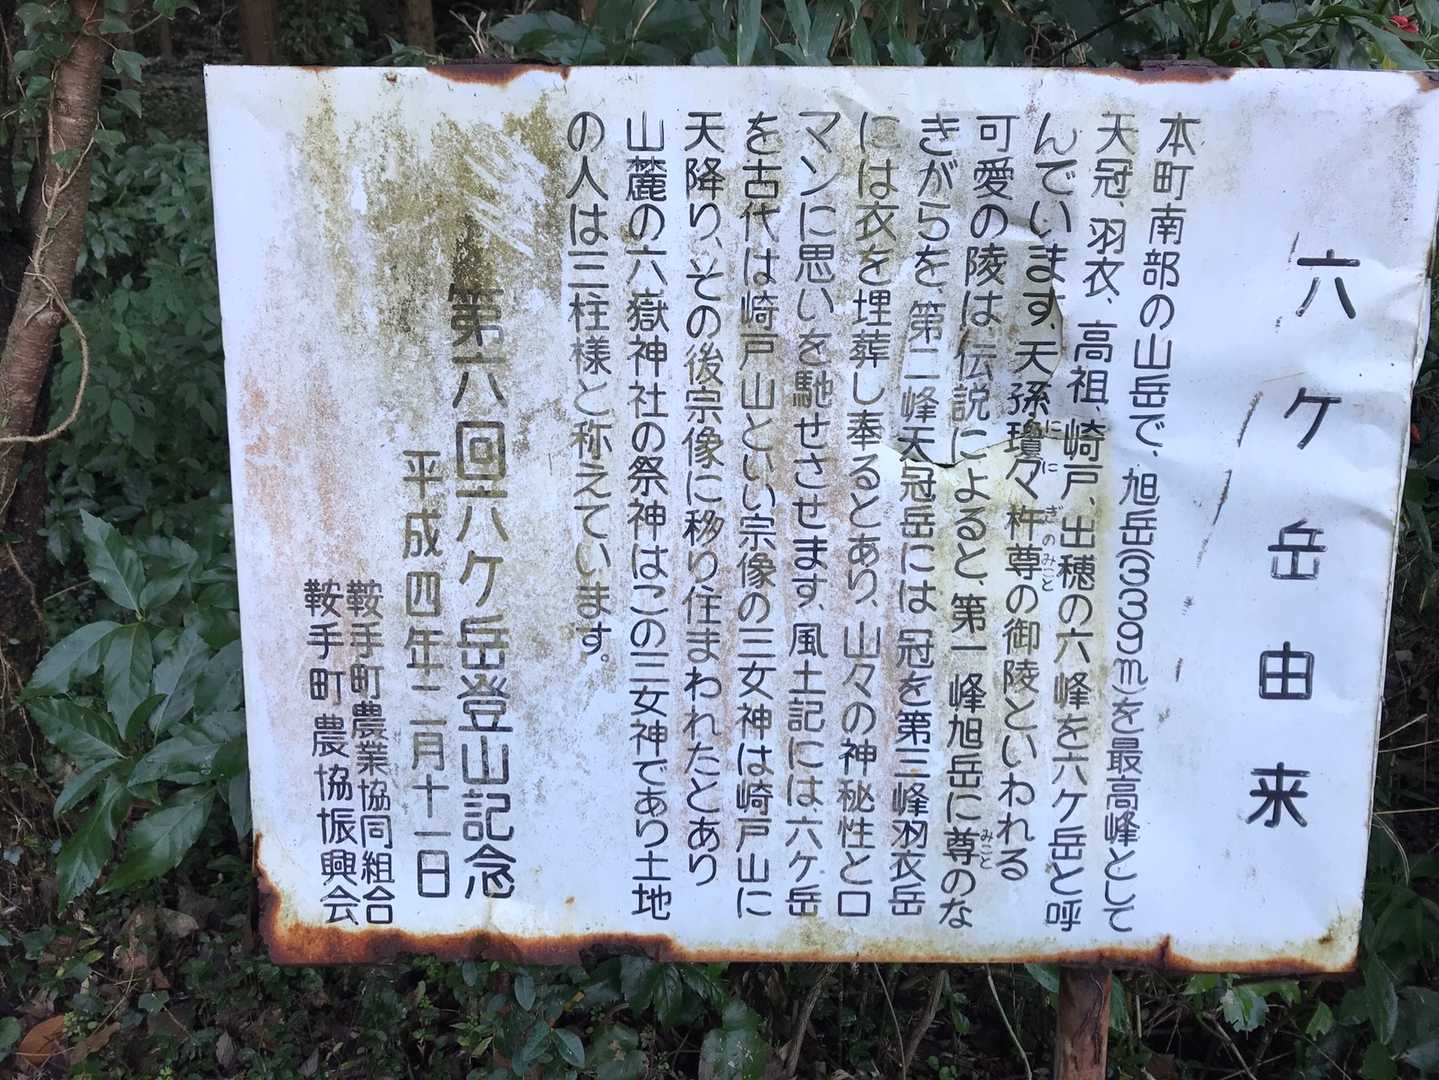 六ケ岳由来
本町南部の山岳で、旭岳(339m)を最高峰として
天冠、羽衣、高祖、崎戸、出穂の六峰を六ケ岳と呼
んでいます、天孫瓊々杵尊の御陵といわれる
ににぎのみこと
可愛の陵は伝説によると、第一峰旭岳に尊のな
みこと
きがらを、第二峰天冠岳には冠を第三峰羽衣岳
には衣を埋葬し奉るとあり、山々の神秘性とロ
マンに思いを馳せさせます、風土記には六ケ岳
を古代は崎戸山といい宗像の三女神は崎戸山に
天降り、その後宗像に移り住まわれたとあり
山麓の六嶽神社の祭神はこの三女神であり土地
の人は三柱様と称えています。
第六回六ケ岳登山記念
平成四年二月十一日
鞍手町農業協同組合
鞍手町農協振興会